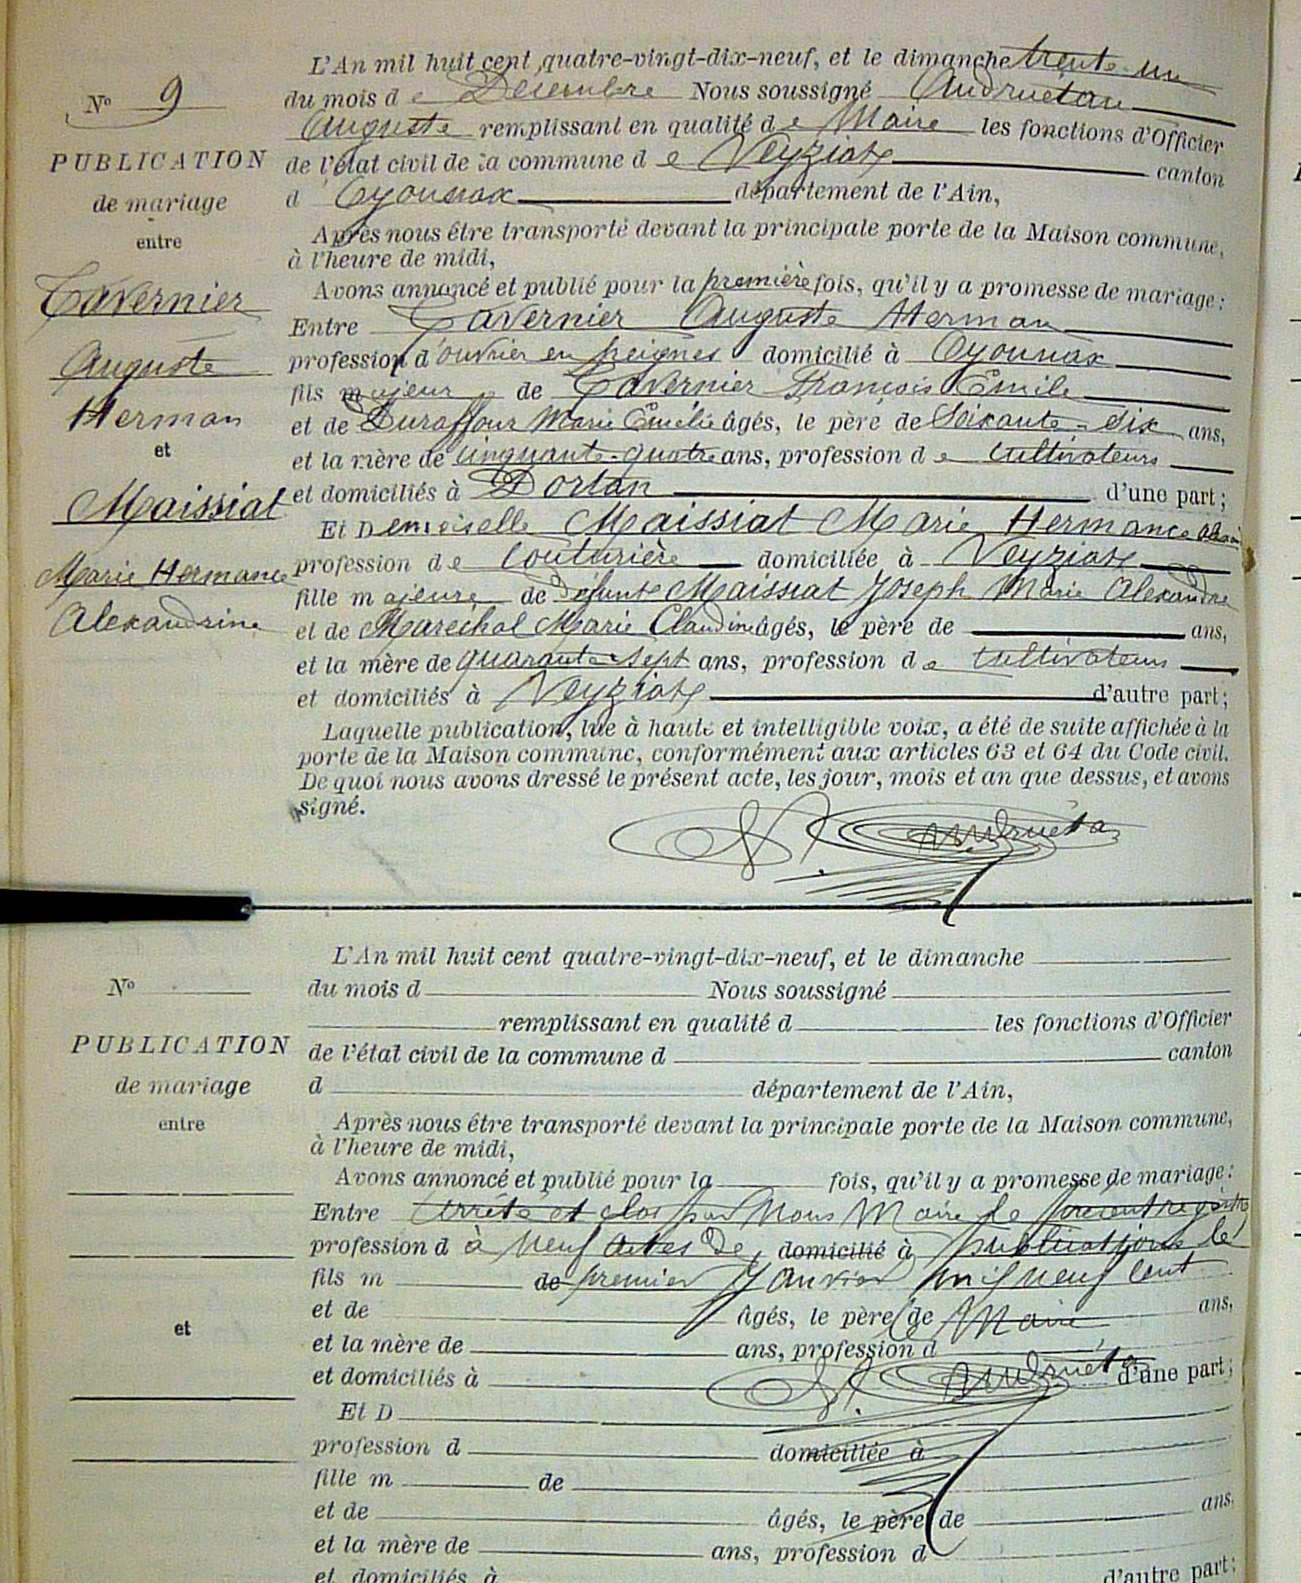 L'An mil huit cent quatre-vingt-dix-neuf, et le dimanche trente-un
du mois de Décembre Nous soussigné Andruétan
Auguste remplissant en qualité de Maire les fonctions d'Officier
de l'état civil de la commune de Veyziat canton
d'Oyonnax département de l'Ain,
Après nous être transporté devant la principale porte de la Maison commune,
à l'heure de midi,
Avons annoncé et publié pour la première fois, qu'il y a promesse de mariage :
Entre Tavernier Auguste Herman
profession d'ouvrier en peignes domicilié à Oyonnax
fils majeur de Tavernier François Emile
et de Duraffour Marie Emélie âgés, le père de Soixante-dix ans,
et la mère de cinquante-quatre ans, profession de cultivateurs
et domiciliés à Dortan d'une part ;
Et Demoiselle Maissiat Marie Hermance
profession de Couturière domiciliée à Veyziat
fille majeure de défunt Maissiat Joseph Marie Alexandre
et de Maréchal Marie Claudine âgés, le père de ans,
et la mère de quarante-sept ans, profession de cultivateurs
et domiciliés à Veyziat d'autre part ;
Laquelle publication, lue à haute et intelligible voix, a été de suite affichée à la
porte de la Maison commune, conformément aux articles 63 et 64 du Code civil.
De quoi nous avons dressé le présent acte, les jour, mois et an que dessus, et avons
signé.
A. Andruétan
No 9
PUBLICATION
de mariage
entre
Tavernier
Auguste
Herman
et
Maissiat
Marie Hermance
Alexandrine
L'An mil huit cent quatre-vingt-dix-neuf, et le dimanche
du mois d Nous soussigné
remplissant en qualité d les fonctions d'Officier
de l'état civil de la commune d canton
d département de l'Ain,
Après nous être transporté devant la principale porte de la Maison commune,
à l'heure de midi,
Avons annoncé et publié pour la fois, qu'il y a promesse de mariage :
Entre Arrêté et clos par Nous Maire le présent registre
profession d à neuf actes de domicilié à publications le
fils m de premier Janvier mil neuf cent
et de âgés, le père de ans,
Le Maire
et la mère de ans, profession d
et domiciliés à d'une part ;
A. Andruétan
Et D
profession d domiciliée à
fille m de
et de âgés, le père de ans,
et la mère de ans, profession d
et domiciliés à d'autre part ;
No
PUBLICATION
de mariage
entre
et